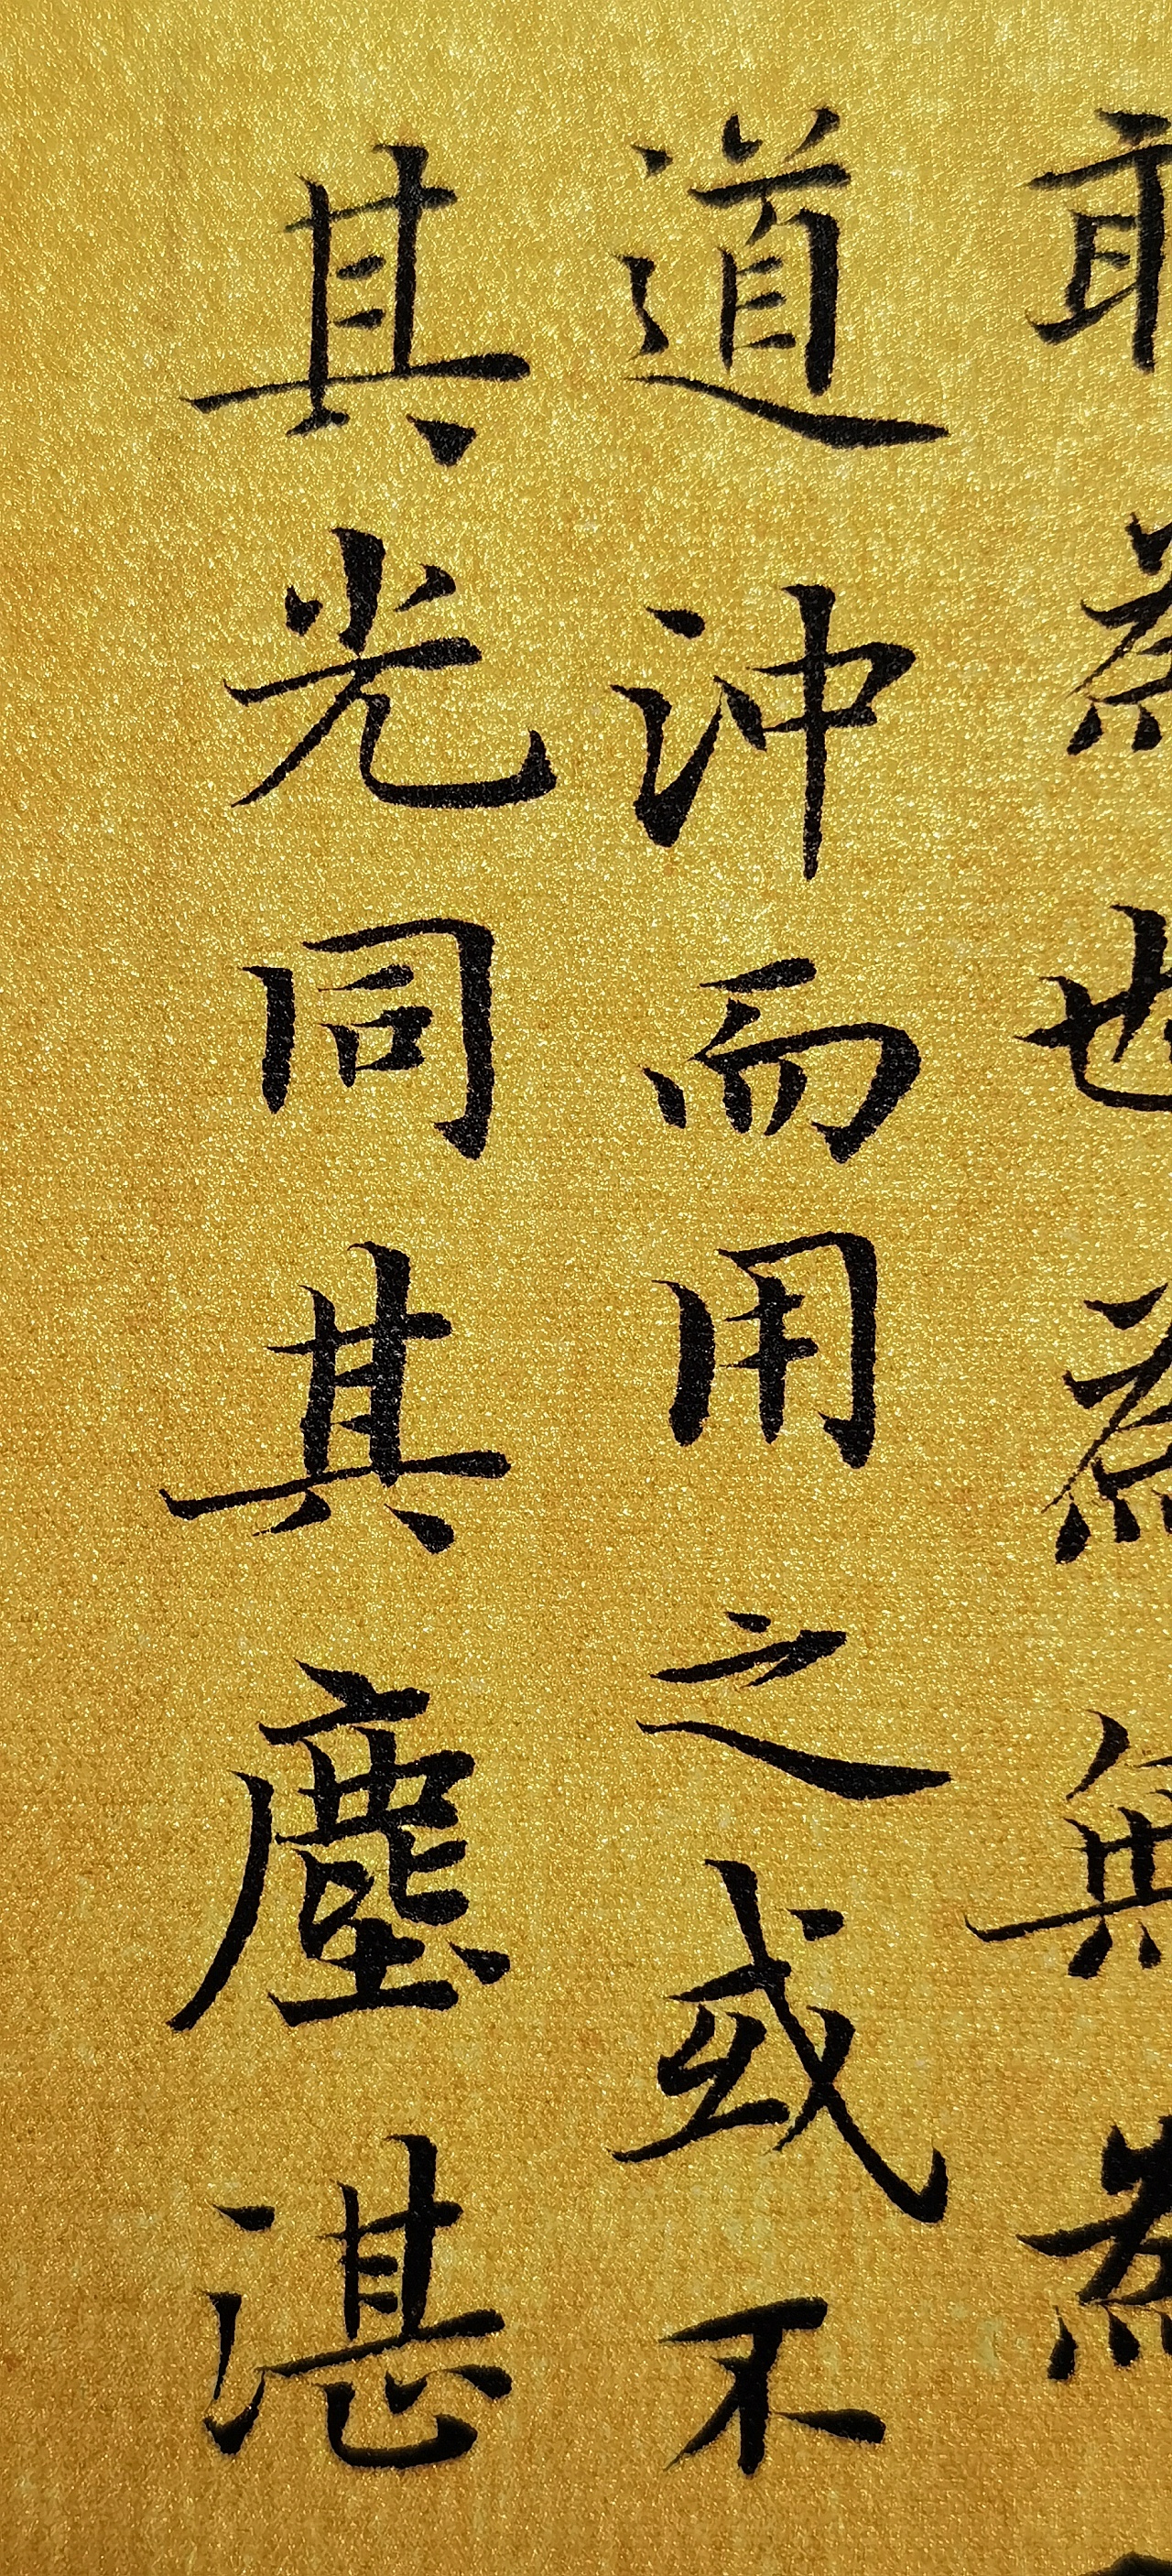 敢為也為無為
道沖而用之或不
其光同其塵湛